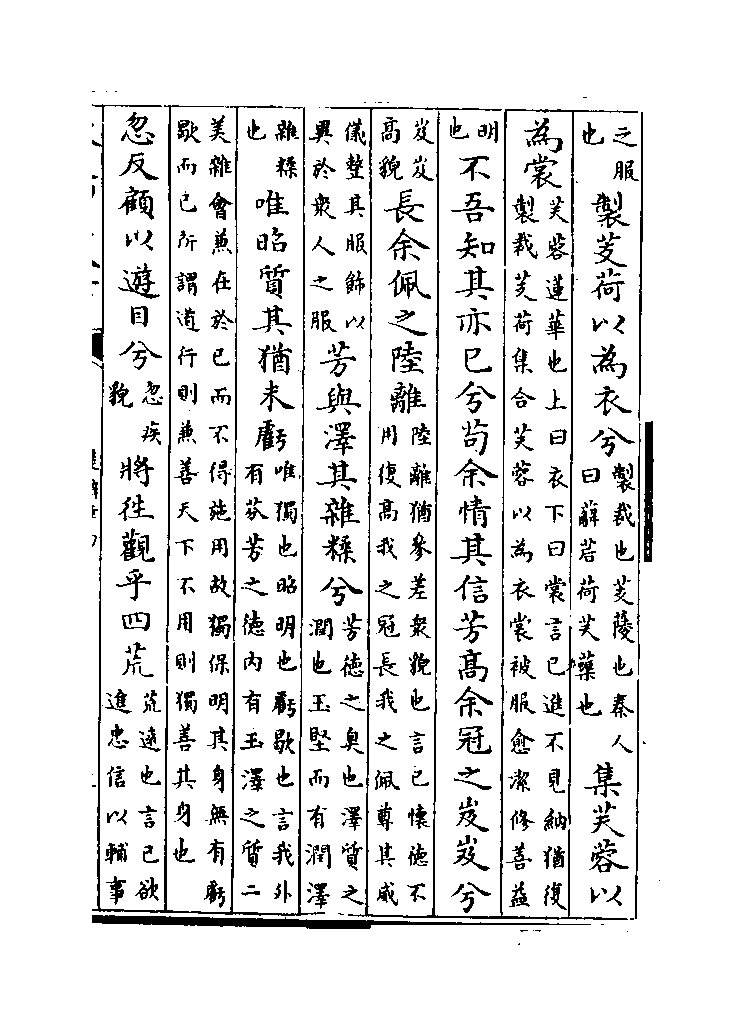 之服也製芰荷以為衣兮製裁也芰蔆也秦人曰薢茩荷芙蕖也集芙蓉以
為裳芙蓉蓮華也上曰衣下曰裳言己進不見納猶復製裁芰荷集合芙蓉以為衣裳被服愈潔修善益
明也不吾知其亦已兮苟余情其信芳高余冠之岌岌兮
岌岌高貌長余佩之陸離陸離猶參差衆貌也言己懷德不用復高我之冠長我之佩尊其威
儀整其服飾以異於衆人之服芳與澤其雜糅兮芳德之臭也澤質之潤也玉堅而有潤澤
雜糅也唯昭質其猶未虧唯獨也昭明也虧歇也言我外有芬芳之德内有玉澤之質二
美雜會兼在於己而不得施用故獨保明其身無有虧歇而已所謂道行則兼善天下不用則獨善其身也
忽反顧以遊目兮忽疾貌將徃觀乎四荒荒逺也言己欲進忠信以輔事